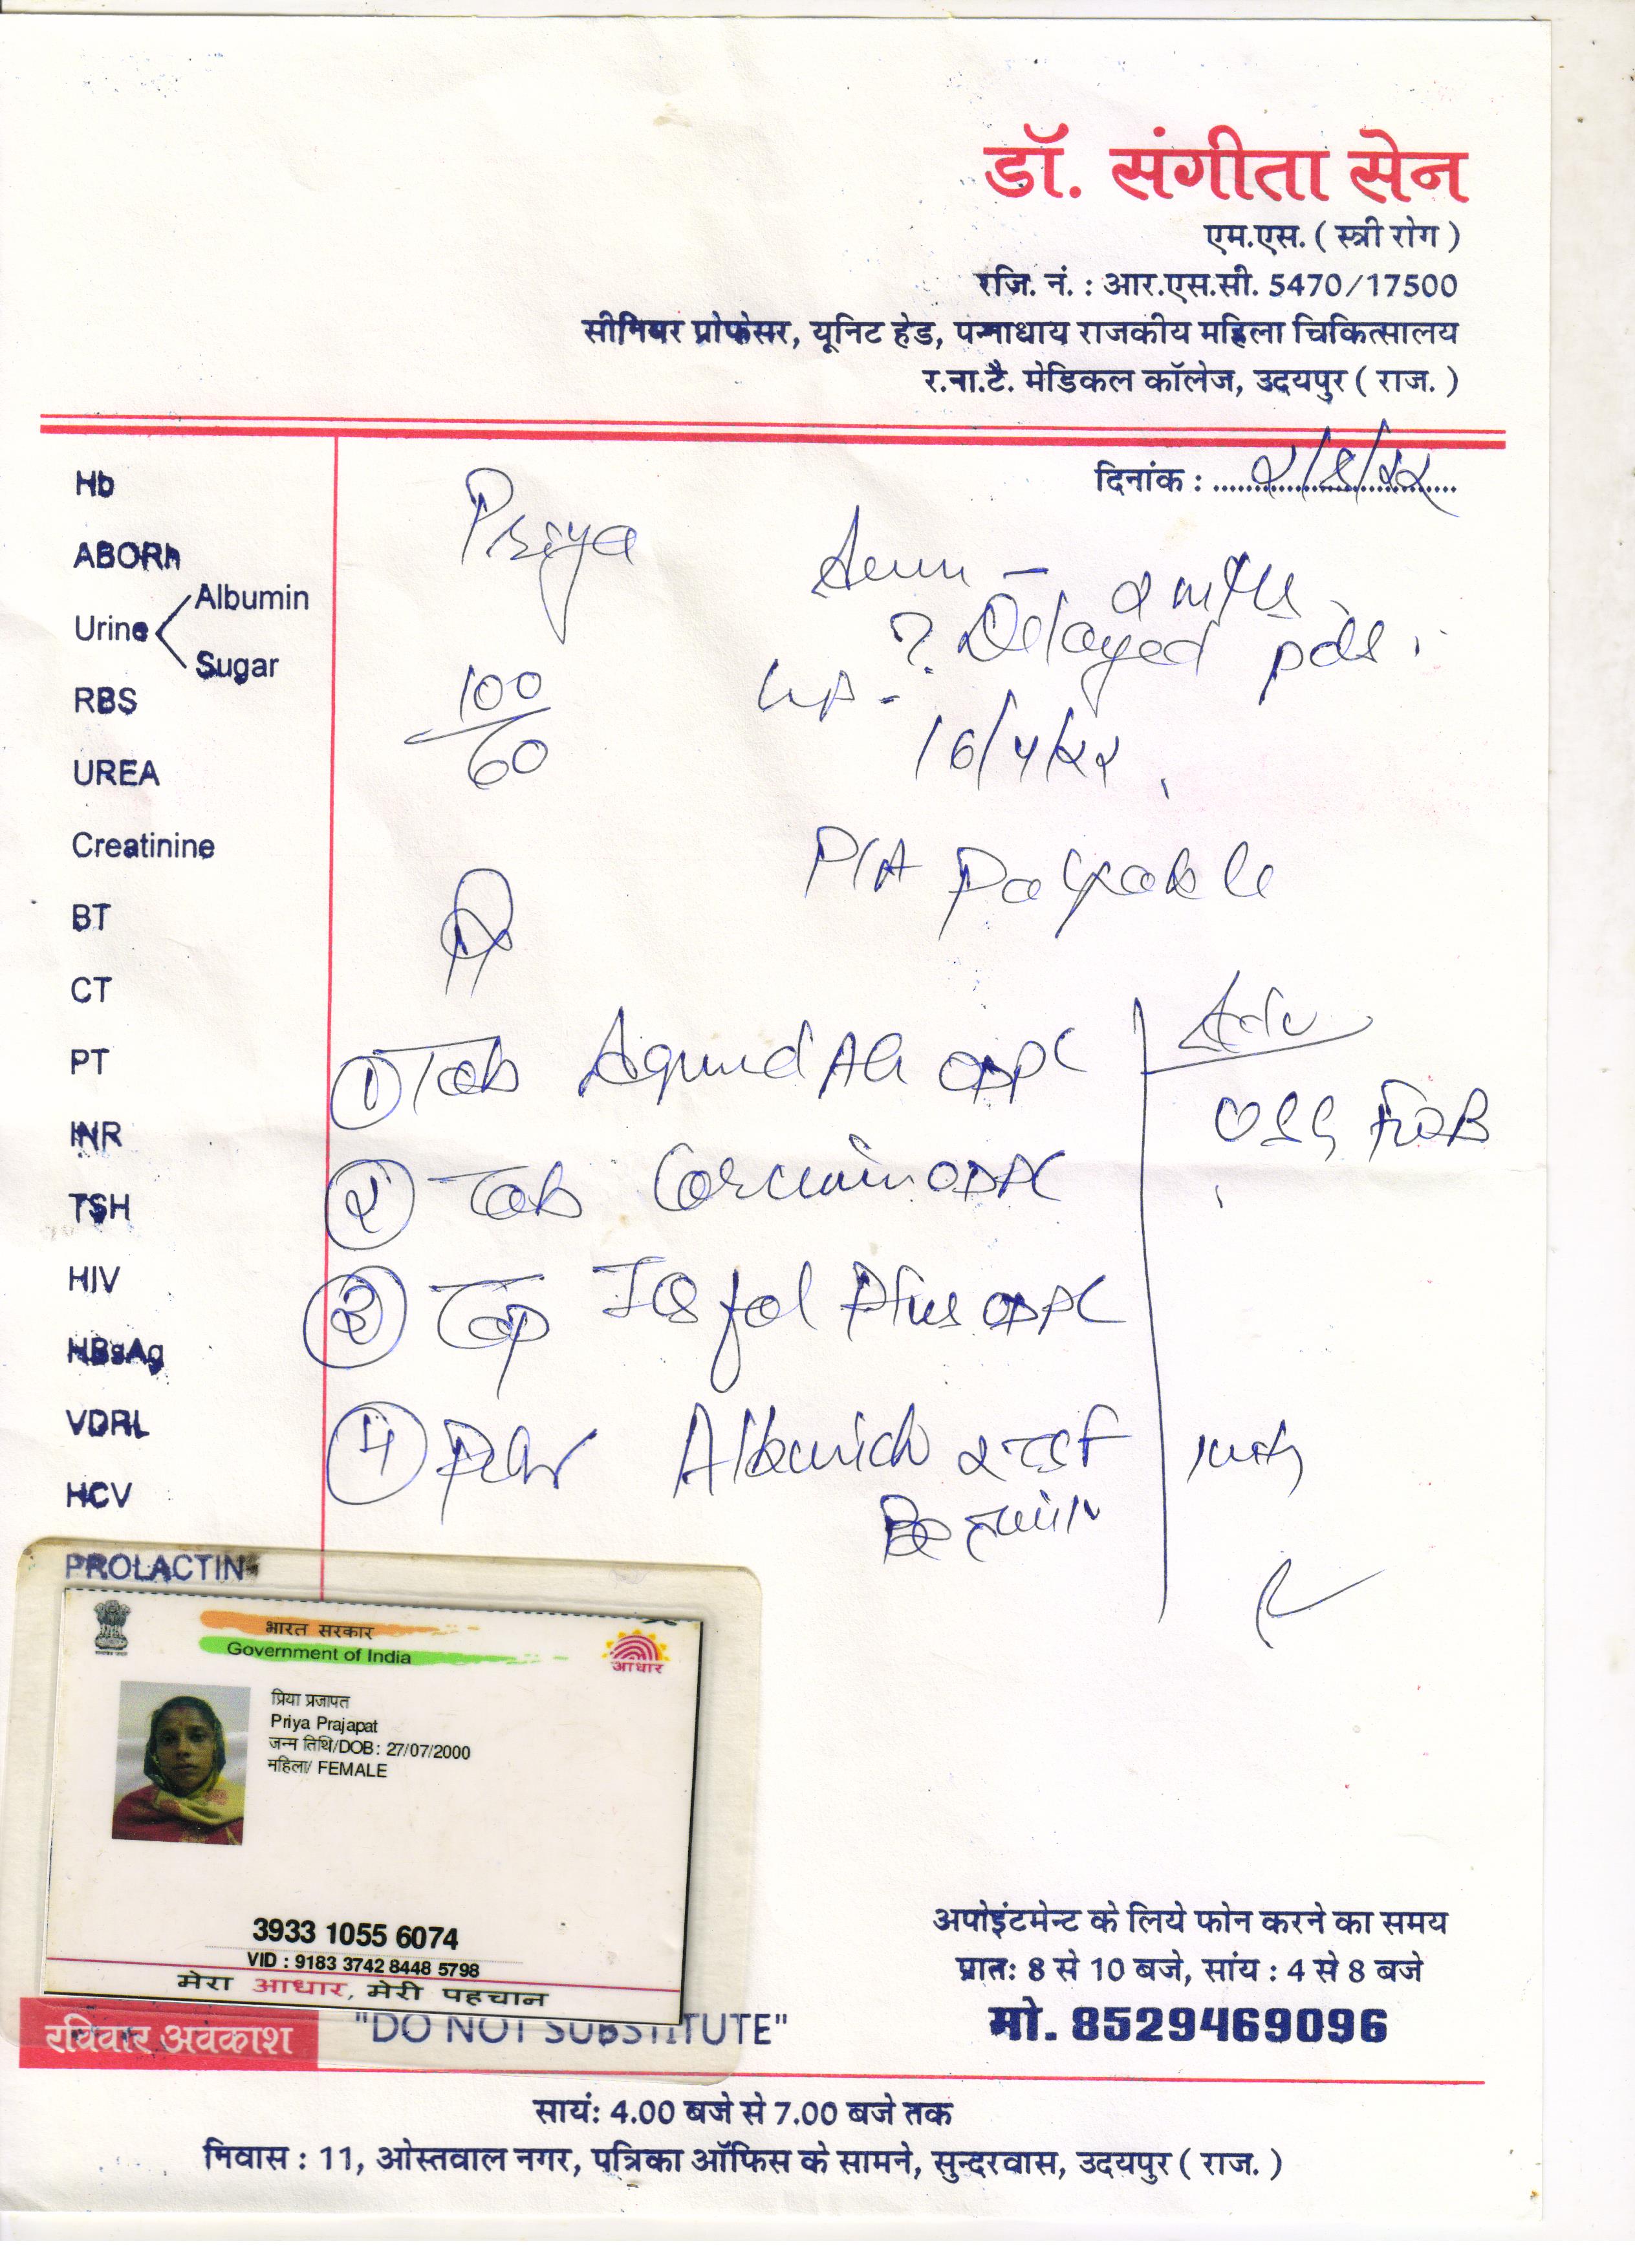 डॉ. संगीता सेन
एम.एस. ( स्त्री रोग )
रजि. नं. : आर.एस.सी. 5470/17500
सीनियर प्रोफेसर, यूनिट हेड, पन्नाधाय राजकीय महिला चिकित्सालय
र.ना.टै. मेडिकल कॉलेज, उदयपुर ( राज. )
दिनांक :
Hb
ABORh
Urine
Albumin
Sugar
RBS
UREA
Creatinine
BT
CT
PT
INR
TSH
HIV
HBsAg
VDRL
HCV
PROLACTIN
Priya
100
60
Amm - २ mths
? Delayed pds.
16/4/२२
P/A Palpable
Adv
USG
① Tab OD PC
② Tab OD PC
③ Cap Plus OD PC
④
भारत सरकार
Government of India
आधार
प्रिया प्रजापत
Priya Prajapat
जन्म तिथि/DOB: 27/07/2000
महिला/ FEMALE
3933 1055 6074
VID : 9183 3742 8448 5798
मेरा आधार, मेरी पहचान
अपोइंटमेन्ट के लिये फोन करने का समय
प्रातः 8 से 10 बजे, सांय : 4 से 8 बजे
मो. 8529469096
रविवार अवकाश
"DO NOT SUBSTITUTE"
सायं: 4.00 बजे से 7.00 बजे तक
निवास : 11, ओस्तवाल नगर, पत्रिका ऑफिस के सामने, सुन्दरवास, उदयपुर ( राज. )